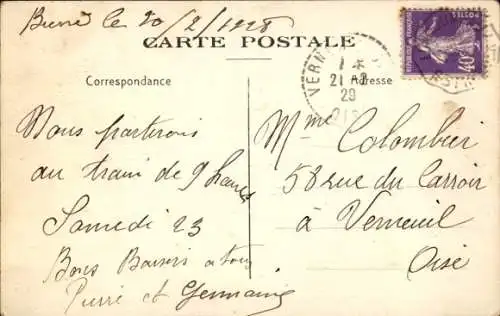 le 20/2/1928
CARTE POSTALE
Correspondance
Adresse
VERN
21-2
29
POSTES
REPUBLIQUE FRANÇAISE
40c
Nous parterons
au train de 9 heures
Samedi 23
Bons Baisers a tous
Pierre et Germaine
Mme Colombier
58 rue du Carroir
à Verneuil
Oise